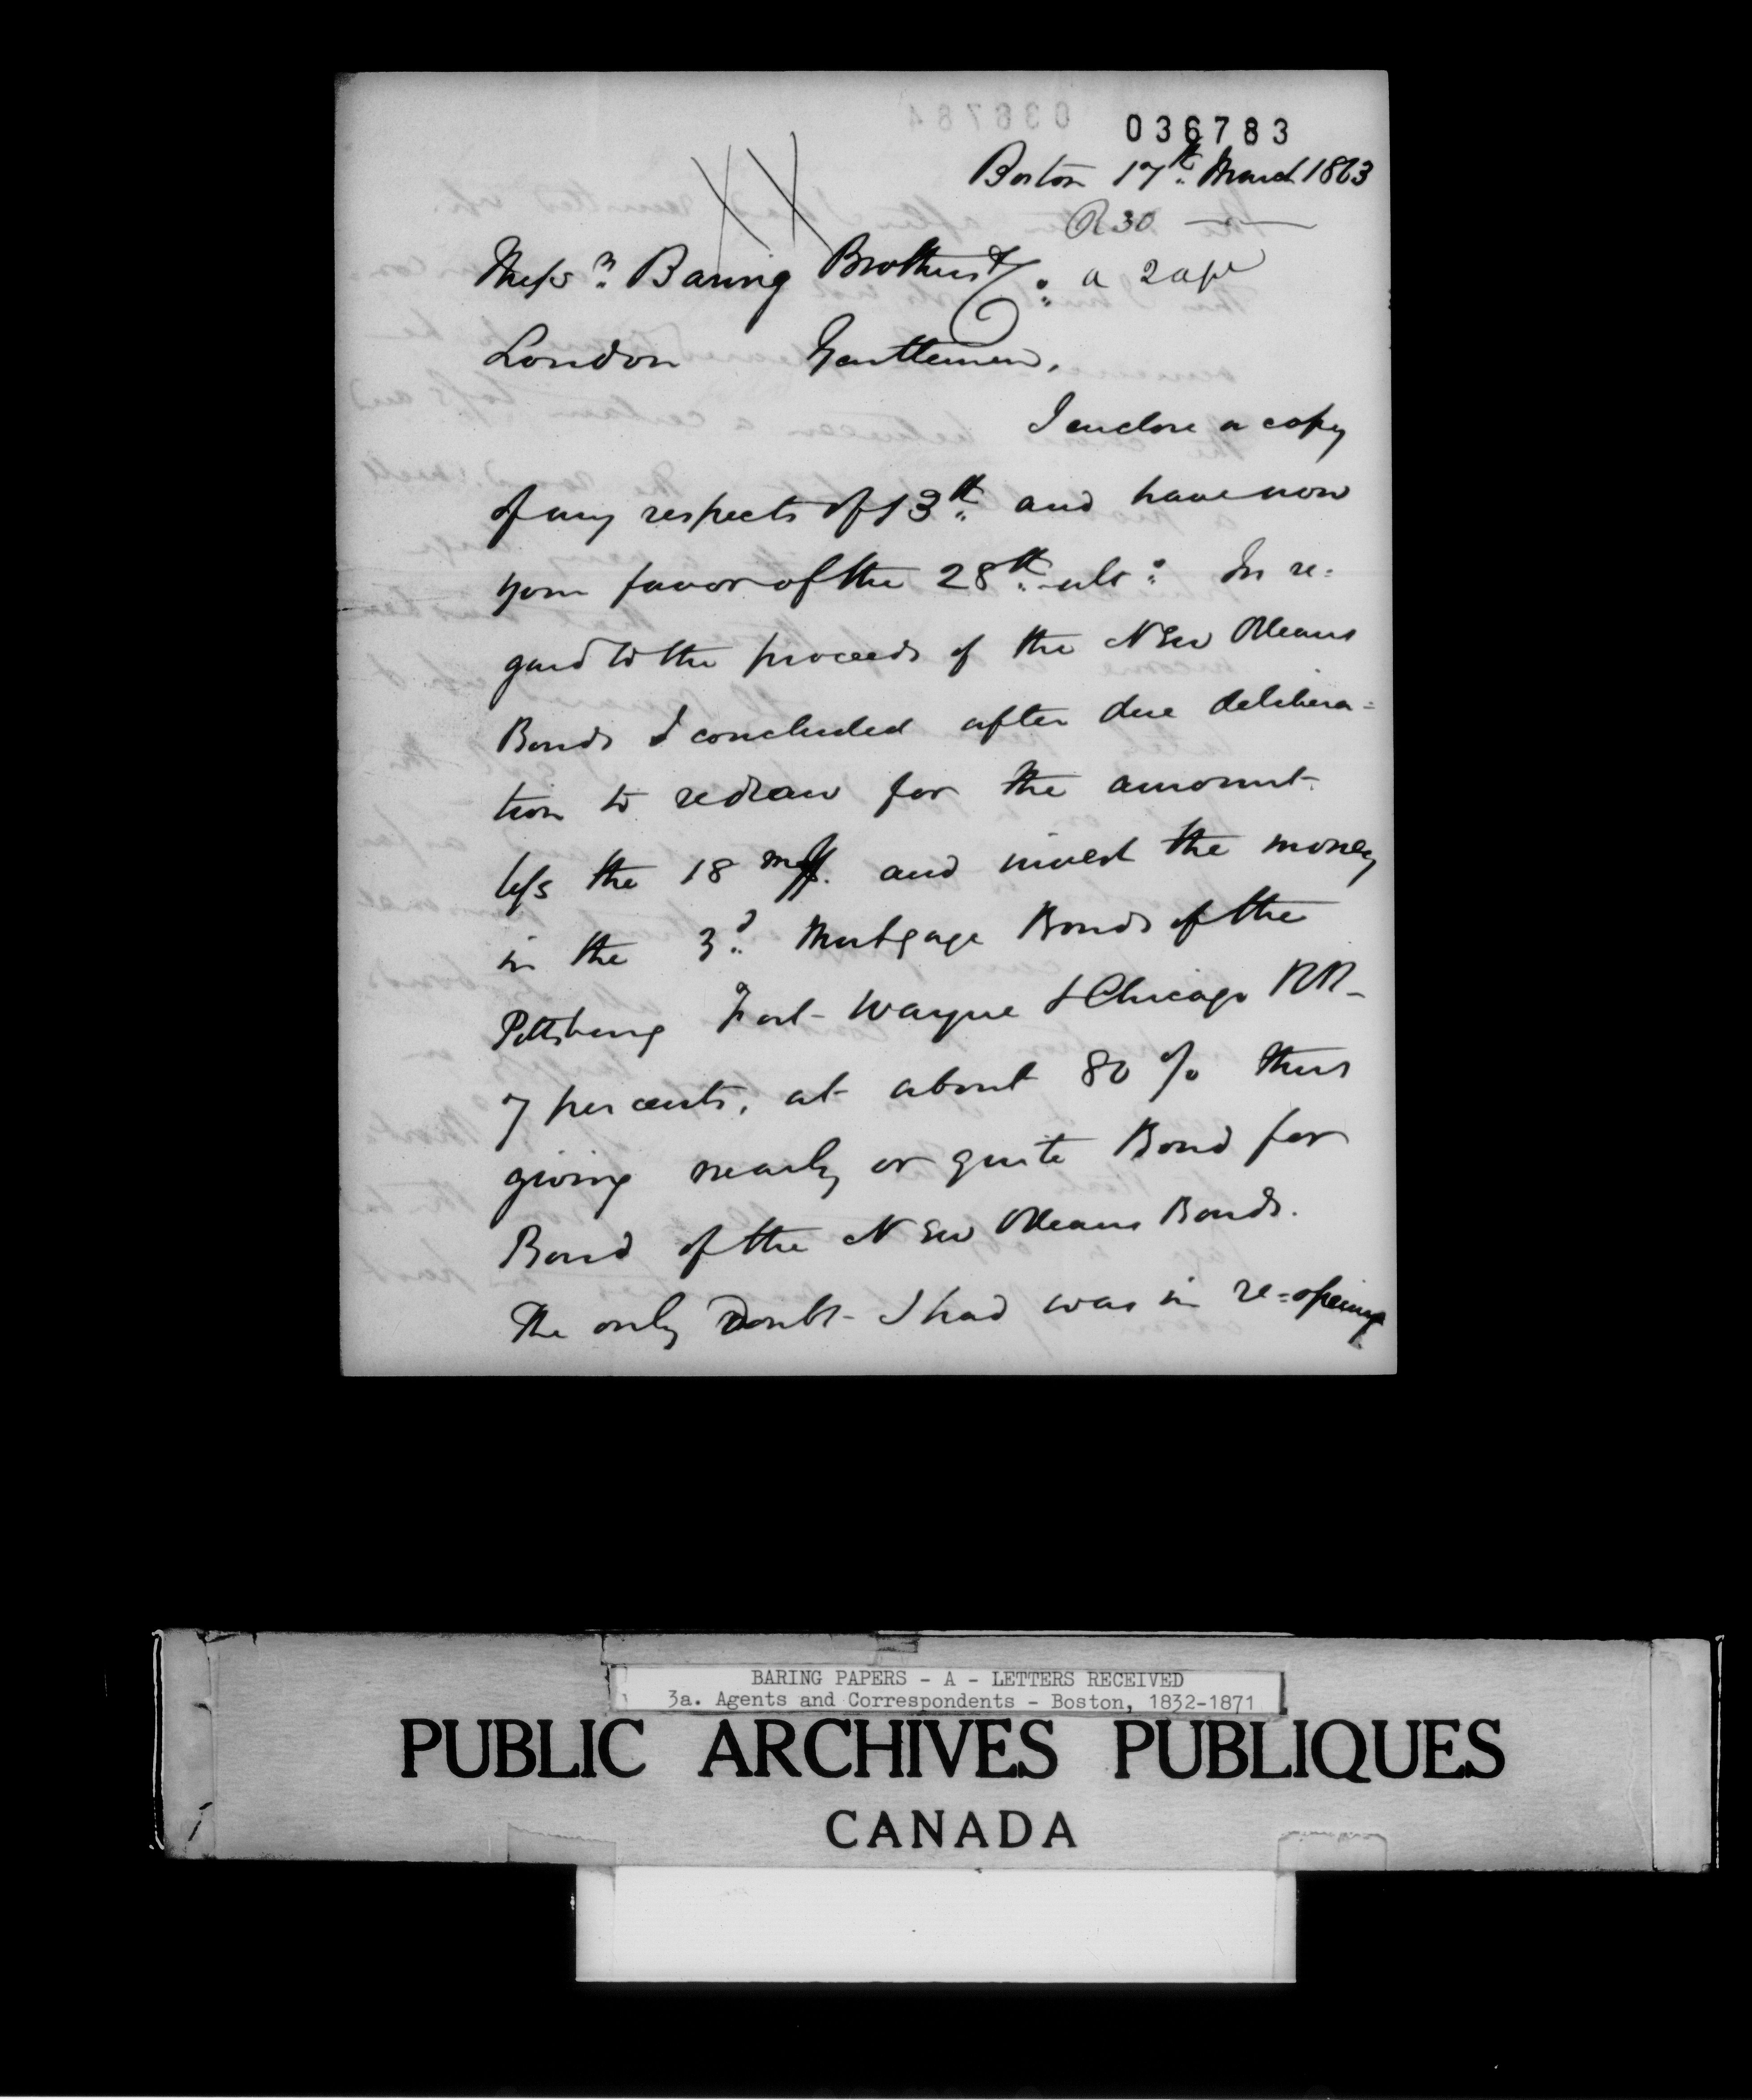 036783
Boston 17th March 1863
R 30
Messrs Baring Brothers & Co a 2 apl
London Gentlemen,
I enclose a copy
of my respects of 13th and have now
your favor of the 28th ulto In re=
gard to the proceeds of the New Orleans
Bonds I concluded after due delibera=
tion to redraw for the amount
less the 18 and invest the money
in the 3d Mortgage Bonds of the
Pittsburg Fort Wayne & Chicago RR
7 per cents, at about 80 % thus
giving nearly or quite Bond for
Bond of the New Orleans Bonds.
The only doubt I had was in re=opening
BARING PAPERS - A - LETTERS RECEIVED
3a. Agents and Correspondents - Boston, 1832-1871
PUBLIC ARCHIVES PUBLIQUES
CANADA